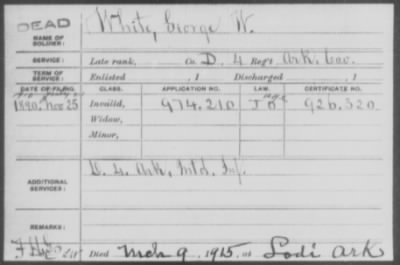 DEAD
White, George W.
NAME OF SOLDIER:
SERVICE: Late rank, Co. D. 4 Reg't Ark. Cav.
TERM OF SERVICE: Enlisted , 1 Discharged , 1
DATE OF FILING. CLASS. APPLICATION NO. LAW. CERTIFICATE NO.
1890, Nov 25 Invalid, 974.210 926.320
Widow,
Minor,
ADDITIONAL SERVICES: D. 4. Ark. Mtd. Inf.
REMARKS:
Died Mch 9, 1915 at Lodi Ark